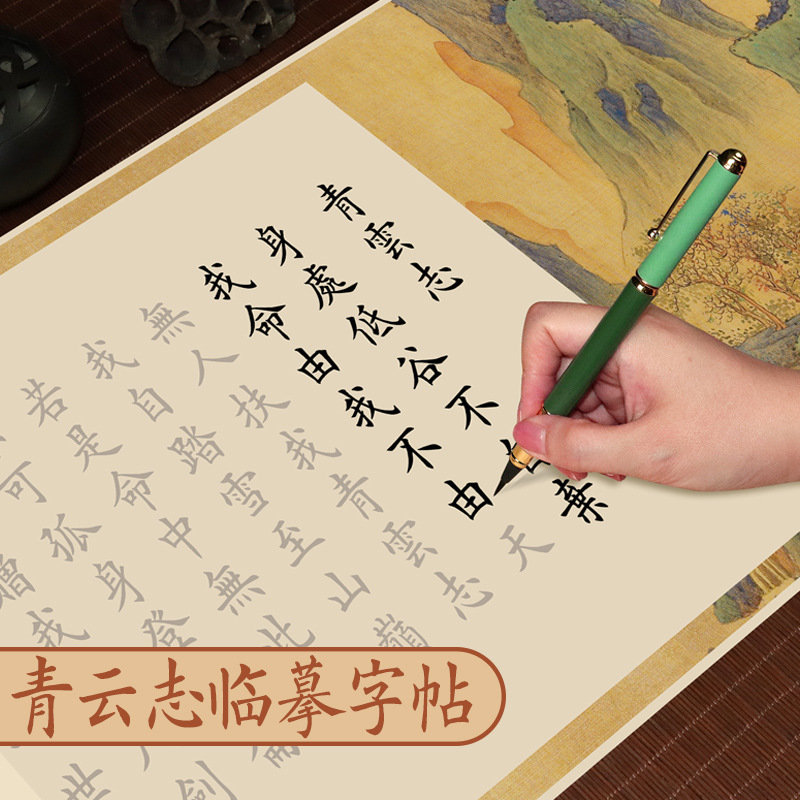 青雲志
身處低谷不棄
我命由我不由天
無人扶我青雲志
我自踏雪至山巔
若是命中無此
可孤身登
我
世
劍
青云志临摹字帖